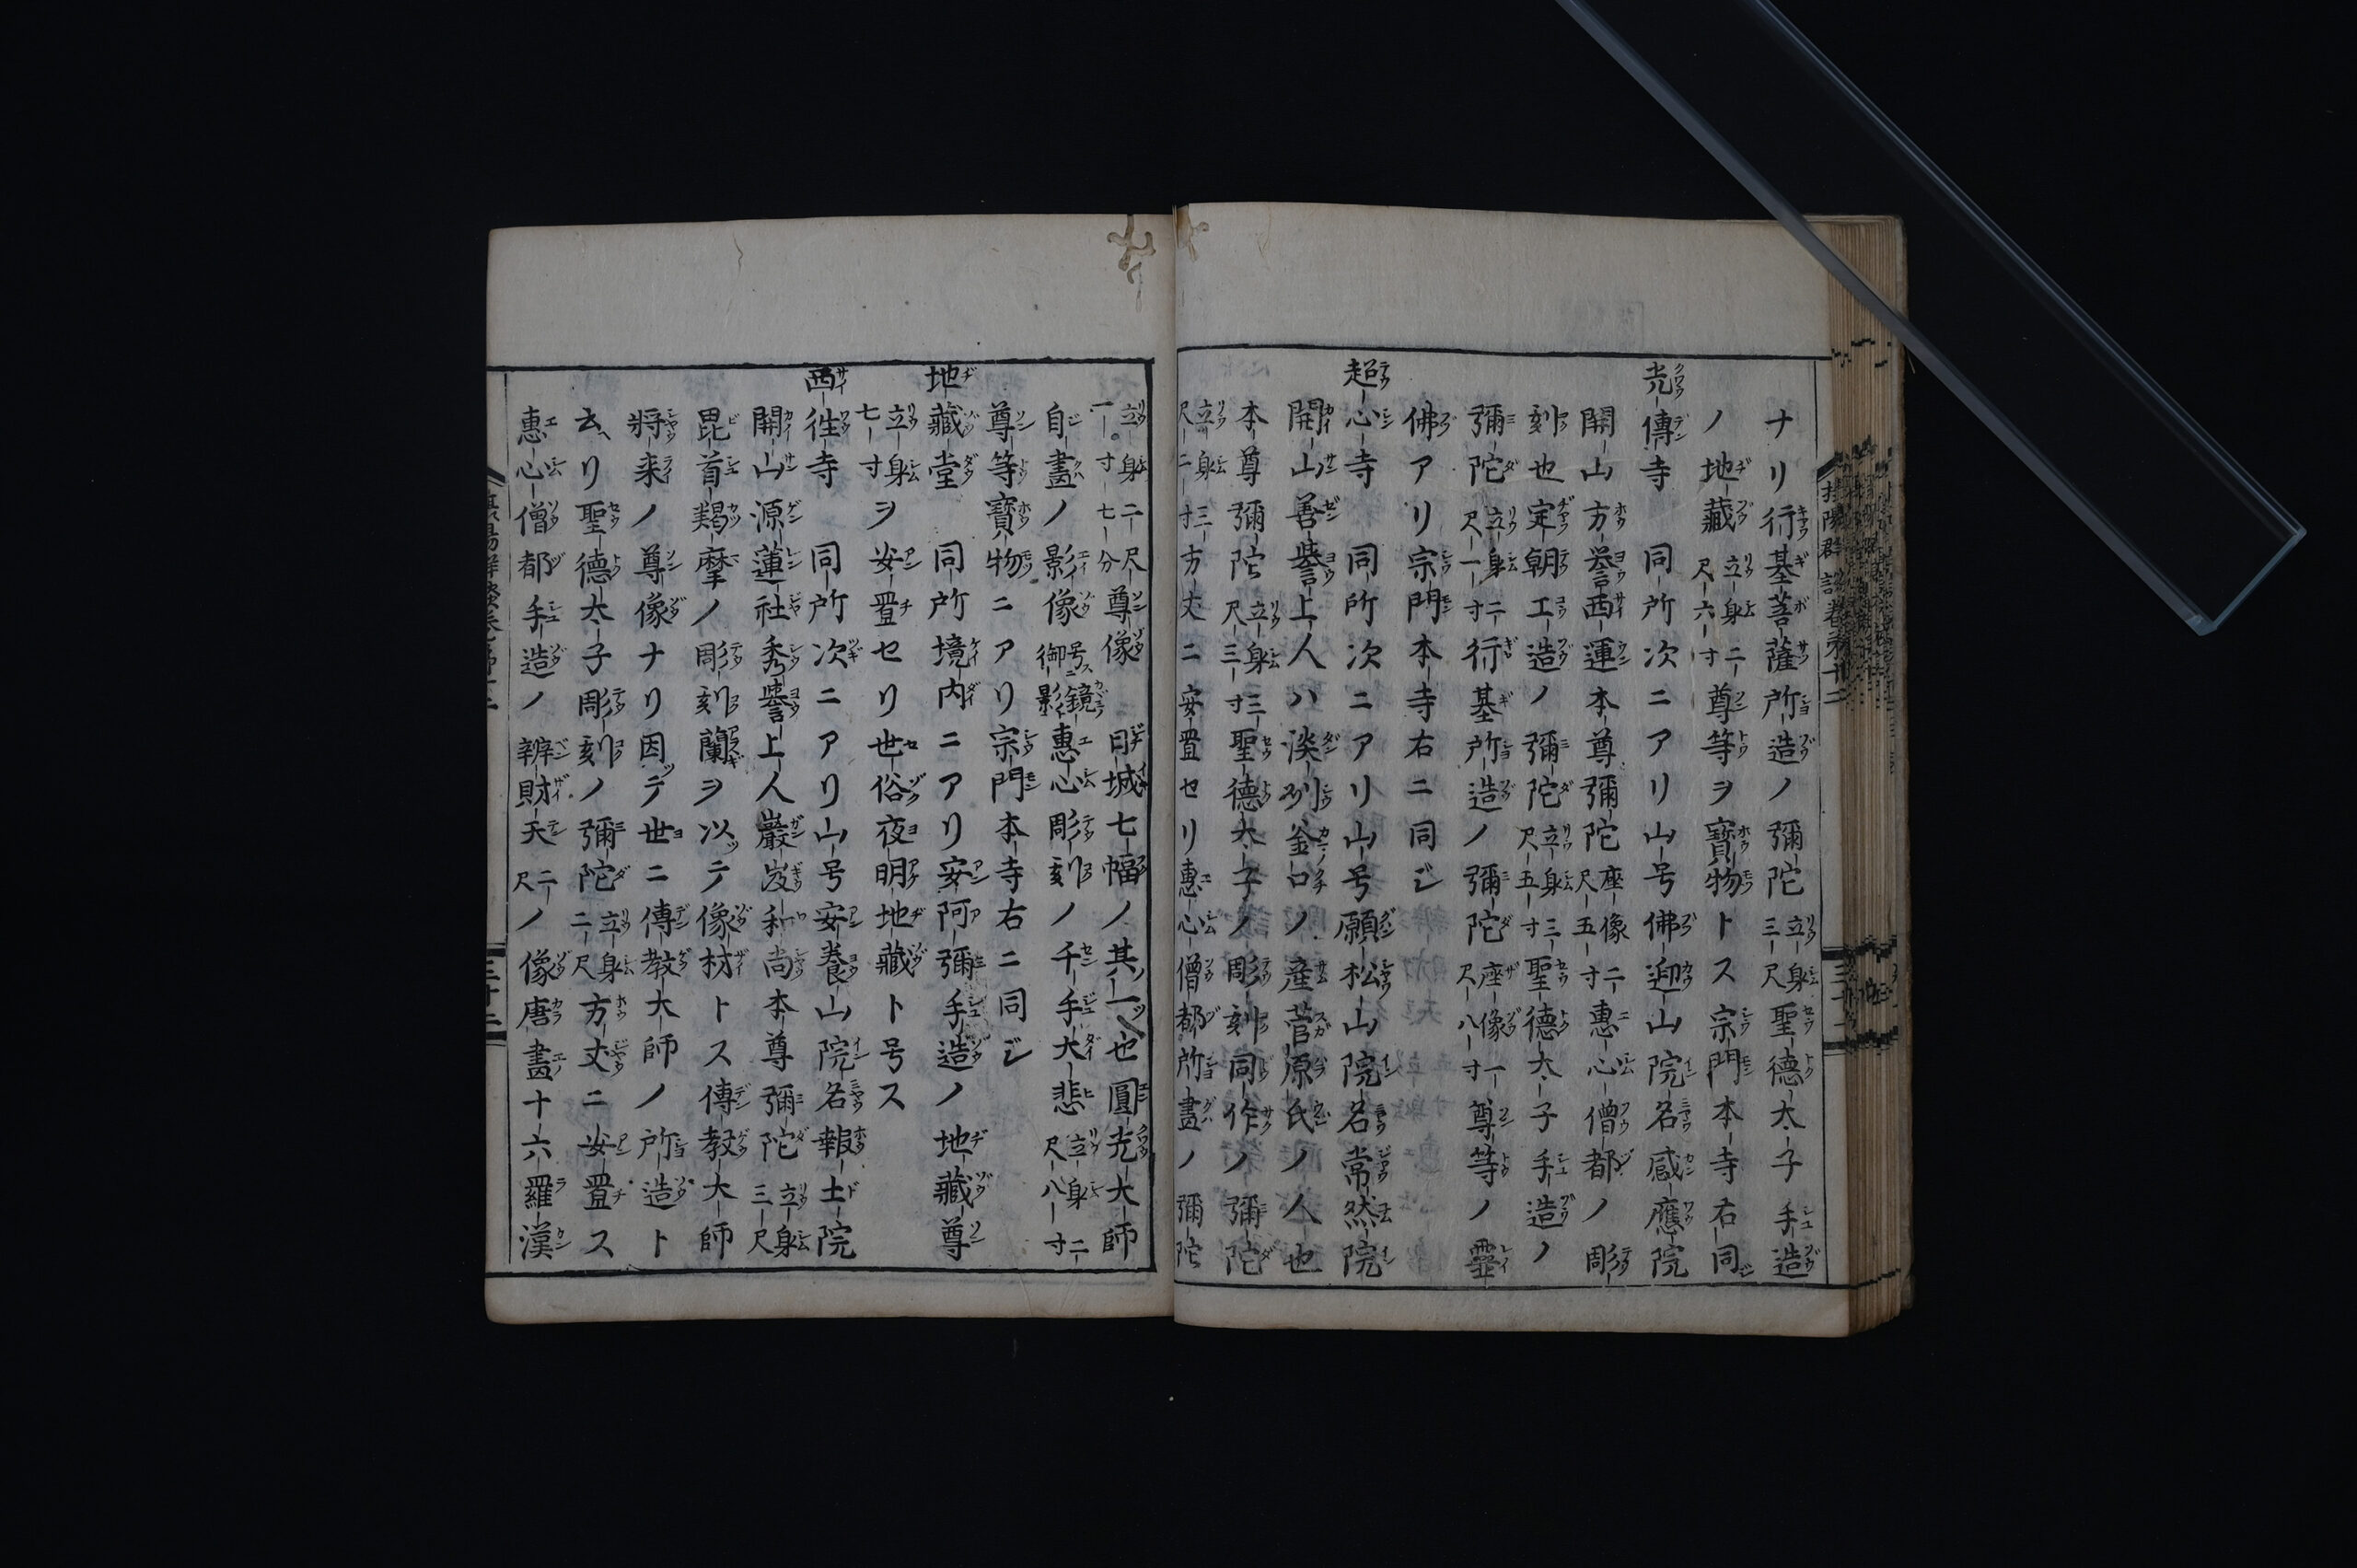 ナリ行基菩薩所造ノ彌陀立身三尺聖德太子手造
ノ地藏立身二尺六寸尊等ヲ寶物トス宗門本寺右同
光傳寺 同所次ニアリ山号佛迎山院名感應院
開山方誉西運本尊彌陀座像二尺五寸惠心僧都ノ彫
刻也定朝工造ノ彌陀立身三尺五寸聖德太子手造ノ
彌陀立身二尺一寸行基所造ノ彌陀座像一尺八寸尊等ノ靈
佛アリ宗門本寺右ニ同ジ
超心寺 同所次ニアリ山号願松山院名常然院
開山善誉上人ハ淡州釜口ノ産菅原氏ノ人也
本尊彌陀立身三尺三寸聖德太子ノ彫刻同作ノ彌陀
立身三尺二寸方丈ニ安置セリ惠心僧都所畫ノ彌陀
立身二尺一寸七分尊像 日城七幅ノ其一也圓光大師
自畫ノ影像号ス鏡御影惠心彫刻ノ千手大悲立身二尺八寸
尊等寶物ニアリ宗門本寺右ニ同ジ
地藏堂 同所境内ニアリ安阿彌手造ノ地藏尊
立身七寸ヲ安置セリ世俗夜明地藏ト号ス
西徃寺 同所次ニアリ山号安養山院名報土院
開山源蓮社秀譽上人巖岌和尚本尊彌陀立身三尺
毘首羯摩ノ彫刻蘭ヲ以テ像材トス傳敎大師
將来ノ尊像ナリ因テ世ニ傳敎大師ノ所造ト
云ヘリ聖德太子彫刻ノ彌陀立身二尺方丈ニ安置ス
惠心僧都手造ノ辨財天二尺ノ像唐畫十六羅漢
三十二